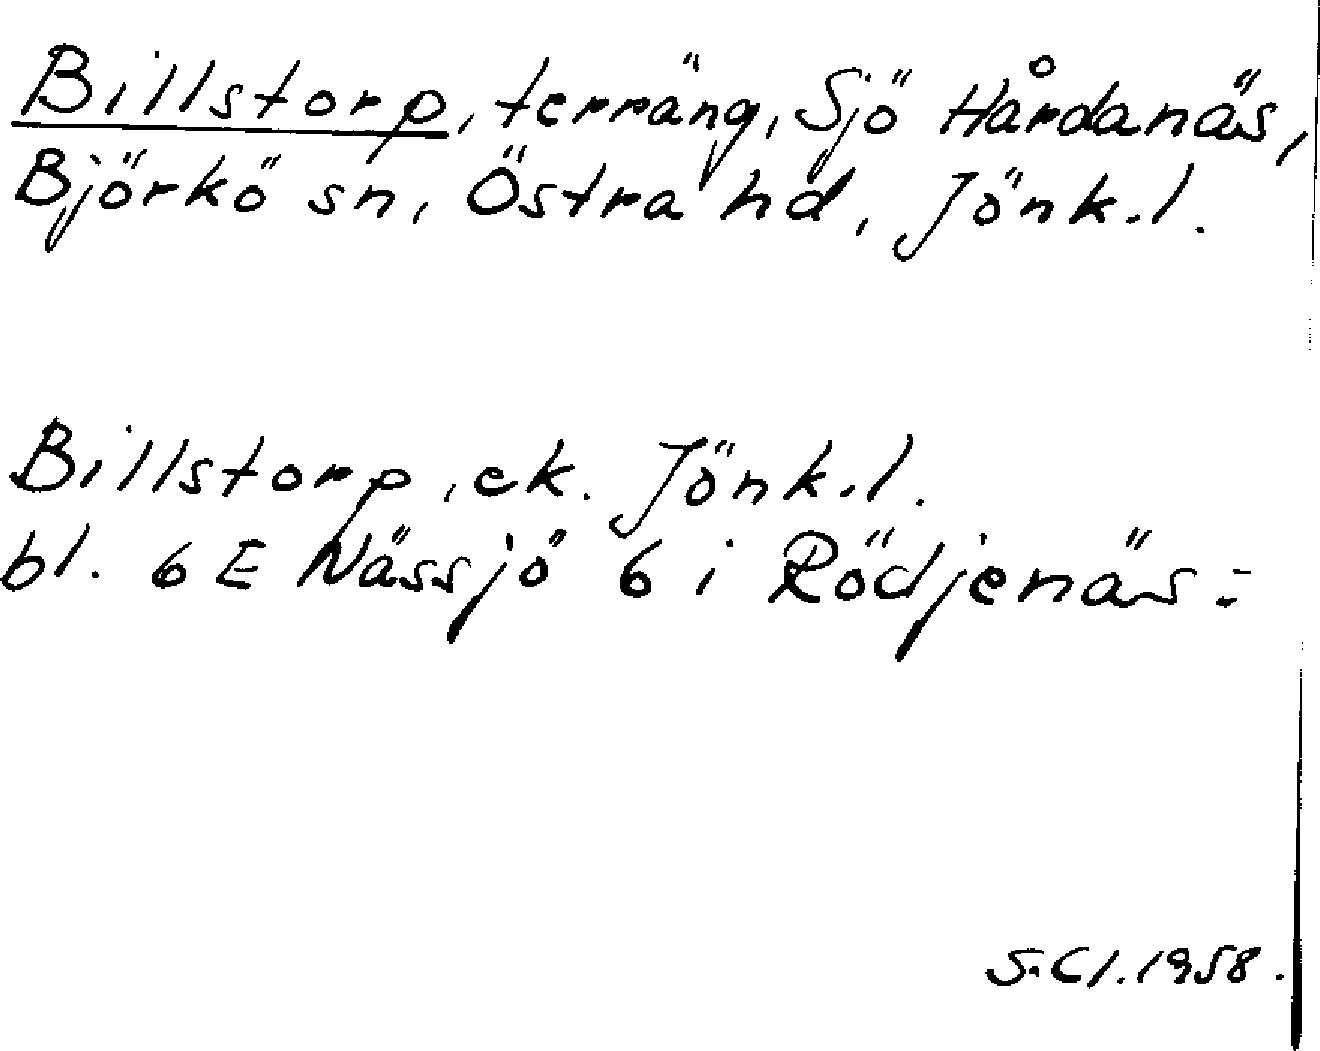 Billstorp, terräng, Sjö Hårdanäs,
Björkö sn, Östra hd, Jönk.l.
Billstorp, ek. Jönk.l.
bl. 6 E Nässjö 6 i Rödjenäs:
S.Cl. 1958.